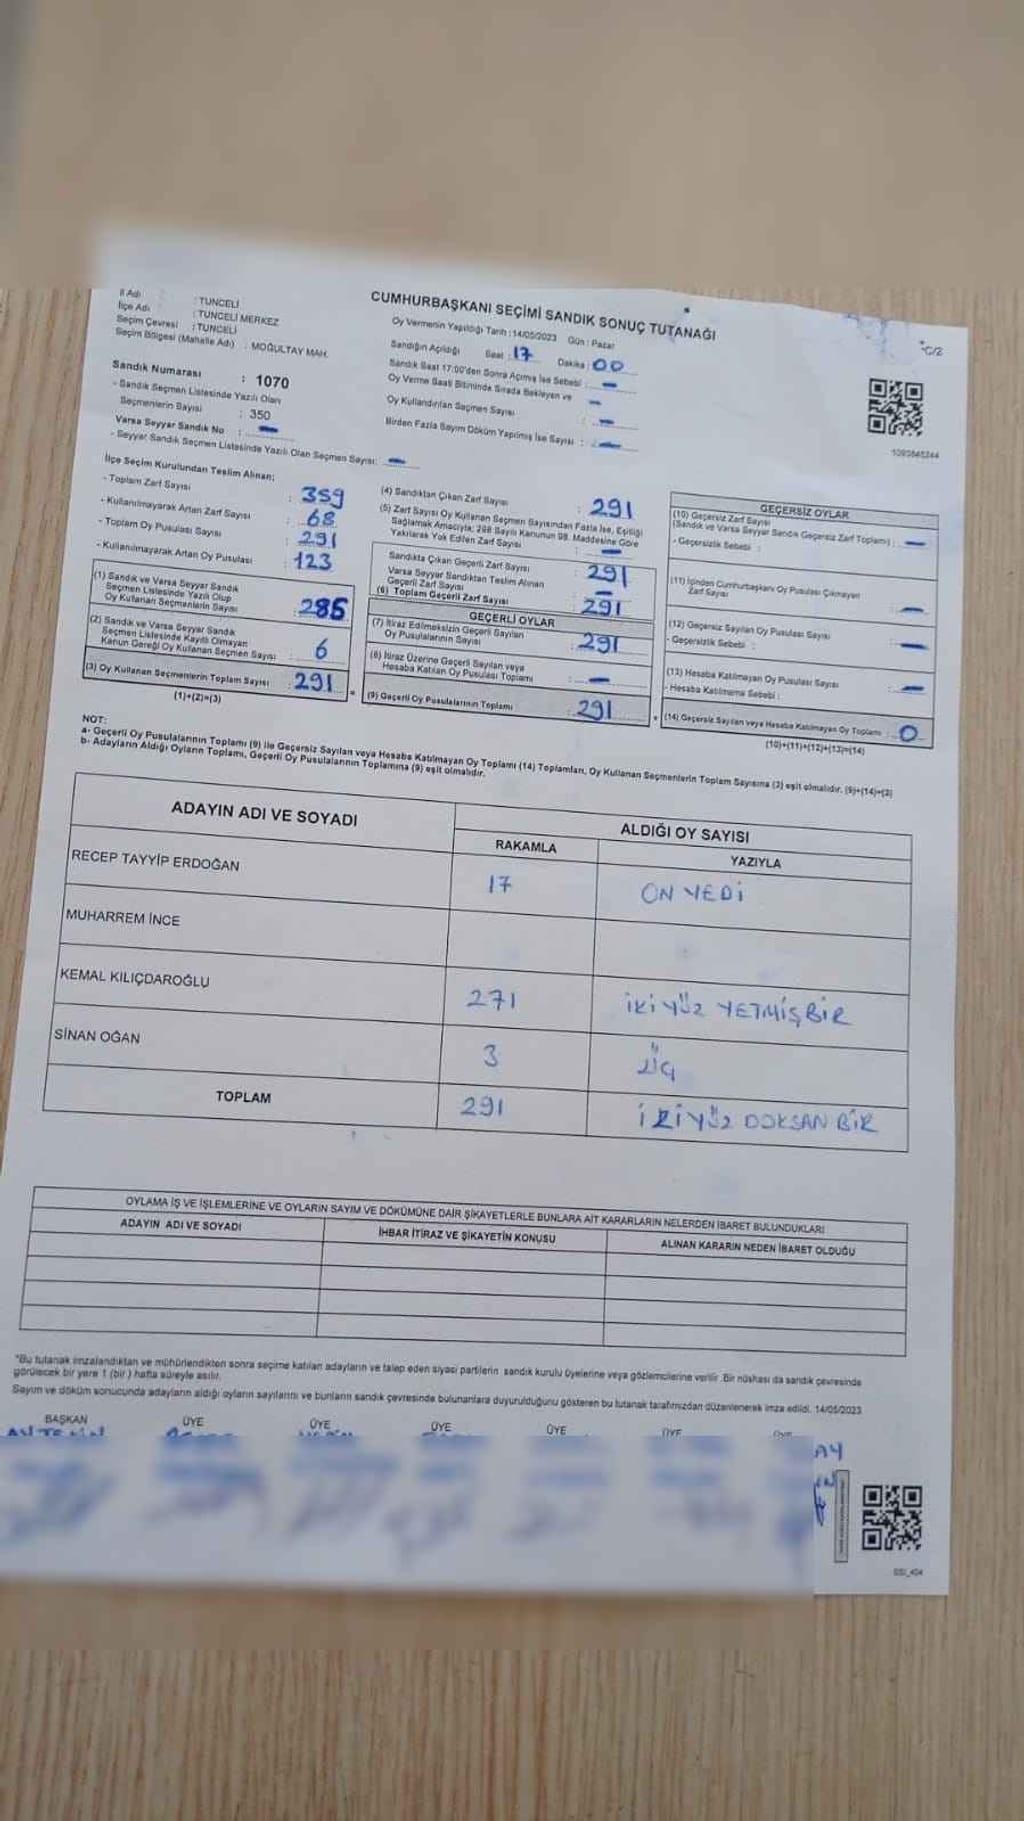 İl Adı : TUNCELİ
İlçe Adı : TUNCELİ MERKEZ
Seçim Çevresi : TUNCELİ
Seçim Bölgesi (Mahalle Adı) : MOĞULTAY MAH.
Sandık Numarası : 1070
- Sandık Seçmen Listesinde Yazılı Olan
Seçmenlerin Sayısı : 350
Varsa Seyyar Sandık No : -
- Seyyar Sandık Seçmen Listesinde Yazılı Olan Seçmen Sayısı: -
CUMHURBAŞKANI SEÇİMİ SANDIK SONUÇ TUTANAĞI
Oy Vermenin Yapıldığı Tarih : 14/05/2023 Gün : Pazar
Sandığın Açıldığı Saat : 17 Dakika : 00
Sandık Saat 17:00'den Sonra Açımış İse Sebebi : -
Oy Verme Saati Bitiminde Sırada Bekleyen ve
Oy Kullandırılan Seçmen Sayısı : -
Birden Fazla Sayım Döküm Yapılmış İse Sayısı : -
C/2
İlçe Seçim Kurulundan Teslim Alınan;
- Toplam Zarf Sayısı : 359
- Kullanılmayarak Artan Zarf Sayısı : 68
- Toplam Oy Pusulası Sayısı : 291
- Kullanılmayarak Artan Oy Pusulası : 123
(1) Sandık ve Varsa Seyyar Sandık
Seçmen Listesinde Yazılı Olup
Oy Kullanan Seçmenlerin Sayısı : 285
(2) Sandık ve Varsa Seyyar Sandık
Seçmen Listesinde Kayıtlı Olmayan
Kanun Gereği Oy Kullanan Seçmen Sayısı : 6
(3) Oy Kullanan Seçmenlerin Toplam Sayısı : 291
(1)+(2)=(3)
(4) Sandıktan Çıkan Zarf Sayısı : 291
(5) Zarf Sayısı Oy Kullanan Seçmen Sayısından Fazla İse, Eşitliği
Sağlamak Amacıyla; 298 Sayılı Kanunun 98. Maddesine Göre
Yakılarak Yok Edilen Zarf Sayısı : -
Sandıkta Çıkan Geçerli Zarf Sayısı : 291
Varsa Seyyar Sandıktan Teslim Alınan
Geçerli Zarf Sayısı : -
(6) Toplam Geçerli Zarf Sayısı : 291
GEÇERLİ OYLAR
(7) İtiraz Edilmeksizin Geçerli Sayılan
Oy Pusulalarının Sayısı : 291
(8) İtiraz Üzerine Geçerli Sayılan veya
Hesaba Katılan Oy Pusulası Toplamı : -
(9) Geçerli Oy Pusulalarının Toplamı : 291
GEÇERSİZ OYLAR
(10) Geçersiz Zarf Sayısı
(Sandık ve Varsa Seyyar Sandık Geçersiz Zarf Toplamı) : -
- Geçersizlik Sebebi :
(11) İçinden Cumhurbaşkanı Oy Pusulası Çıkmayan
Zarf Sayısı : -
(12) Geçersiz Sayılan Oy Pusulası Sayısı : -
- Geçersizlik Sebebi :
(13) Hesaba Katılmayan Oy Pusulası Sayısı : -
- Hesaba Katılmama Sebebi :
(14) Geçersiz Sayılan veya Hesaba Katılmayan Oy Toplamı : 0
(10)+(11)+(12)+(13)=(14)
NOT:
a- Geçerli Oy Pusulalarının Toplamı (9) ile Geçersiz Sayılan veya Hesaba Katılmayan Oy Toplamı (14) Toplamları, Oy Kullanan Seçmenlerin Toplam Sayısına (3) eşit olmalıdır. (9)+(14)=(3)
b- Adayların Aldığı Oyların Toplamı, Geçerli Oy Pusulalarının Toplamına (9) eşit olmalıdır.
ADAYIN ADI VE SOYADI
ALDIĞI OY SAYISI
RAKAMLA YAZIYLA
RECEP TAYYİP ERDOĞAN 17 ON YEDİ
MUHARREM İNCE
KEMAL KILIÇDAROĞLU 271 İKİ YÜZ YETMİŞ BİR
SİNAN OĞAN 3 ÜÇ
TOPLAM 291 İKİYÜZ DOKSAN BİR
OYLAMA İŞ VE İŞLEMLERİNE VE OYLARIN SAYIM VE DÖKÜMÜNE DAİR ŞİKAYETLERLE BUNLARA AİT KARARLARIN NELERDEN İBARET BULUNDUKLARI
ADAYIN ADI VE SOYADI İHBAR İTİRAZ VE ŞİKAYETİN KONUSU ALINAN KARARIN NEDEN İBARET OLDUĞU
*Bu tutanak imzalandıktan ve mühürlendikten sonra seçime katılan adayların ve talep eden siyasi partilerin sandık kurulu üyelerine veya gözlemcilerine verilir. Bir nüshası da sandık çevresinde
görülecek bir yere 1 (bir ) hafta süreyle asılır.
Sayım ve döküm sonucunda adayların aldığı oyların sayılarını ve bunların sandık çevresinde bulunanlara duyurulduğunu gösteren bu tutanak tarafımızdan düzenlenerek imza edildi. 14/05/2023
BAŞKAN ÜYE ÜYE ÜYE ÜYE ÜYE ÜYE